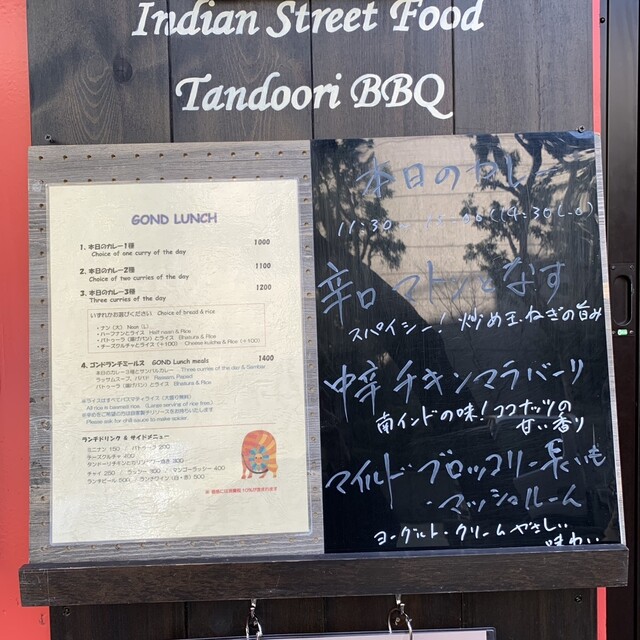 Indian Street Food
Tandoori BBQ
GOND LUNCH
1. 本日のカレー1種 1000
Choice of one curry of the day
2. 本日のカレー2種 1100
Choice of two curries of the day
3. 本日のカレー3種 1200
Three curries of the day
いずれかお選びください Choice of bread & rice
・ナン（大） Naan (L)
・ハーフナンとライス Half naan & Rice
・バトゥーラ（揚げパン）とライス Bhatura & Rice
・チーズクルチャとライス（+100） Cheese kulcha & Rice (+100)
4. ゴンドランチミールス GOND Lunch meals 1400
本日のカレー3種とサンバルカレー Three curries of the day & Sambar
ラッサムスープ、パパド Rasam, Papad
バトゥーラ（揚げパン）とライス Bhatura & Rice
※ライスはすべてバスマティライス（大盛り無料）
All rice is basmati rice. (Large serving of rice free.)
Please ask for chili sauce to make spicier.
ランチドリンク & サイドメニュー
ミニナン 150 / バトゥーラ 200
チーズクルチャ 400
チャイ 250 / ラッシー 300 / マンゴーラッシー 400
ランチビール 500 / ランチワイン（白・赤）500
本日のカレー
11:30
辛口 マトンとなす
スパイシー！炒め玉ねぎの旨み
中辛 チキンマラバーリ
南インドの味！ココナッツの
甘い香り
マイルド ブロッコリー 長いも
・マッシュルーム
ヨーグルト・クリームやさしい
味わい